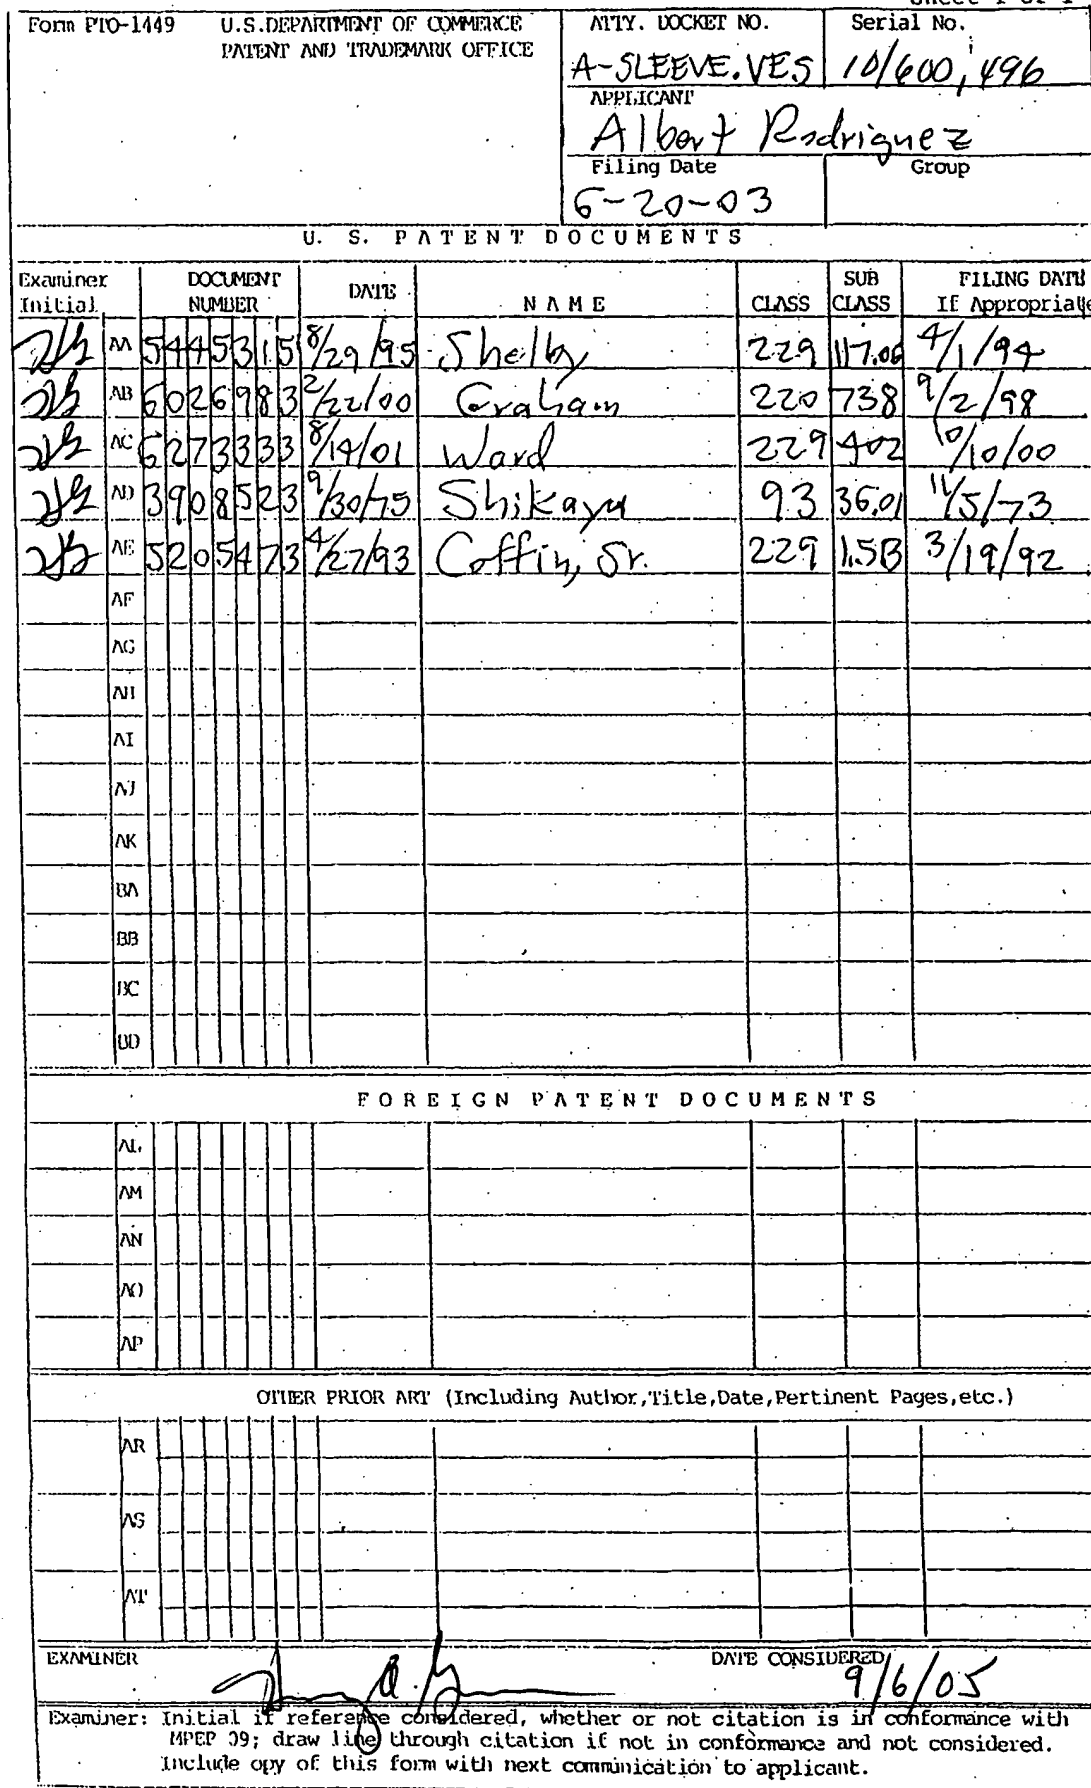 Form PTO-1449 U.S.DEPARTMENT OF COMMERCE ATTY. DOCKET NO. Serial No.
PATENT AND TRADEMARK OFFICE
A-SLEEVE.VES 10/600,496
APPLICANT
Albert Rodriguez
Filing Date Group
6-20-03
U. S. PATENT DOCUMENTS
Examiner DOCUMENT DATE NAME CLASS SUB FILING DATE
Initial NUMBER CLASS If Appropriate
AA 5445315 8/29/95 Shelby 229 117.06 4/1/94
AB 6026983 2/22/00 Graham 220 738 9/2/98
AC 6273333 8/14/01 Ward 229 402 10/10/00
AD 3908523 9/30/75 Shikaya 93 36.01 11/5/73
AE 5205473 4/27/93 Coffin, Sr. 229 1.5B 3/19/92
AF
AG
AH
AI
AJ
AK
BA
BB
BC
BD
FOREIGN PATENT DOCUMENTS
AL
AM
AN
AO
AP
OTHER PRIOR ART (Including Author,Title,Date,Pertinent Pages,etc.)
AR
AS
AT
EXAMINER DATE CONSIDERED
9/6/05
Examiner: Initial if reference considered, whether or not citation is in conformance with
MPEP 09; draw line through citation if not in conformance and not considered.
Include opy of this form with next communication to applicant.